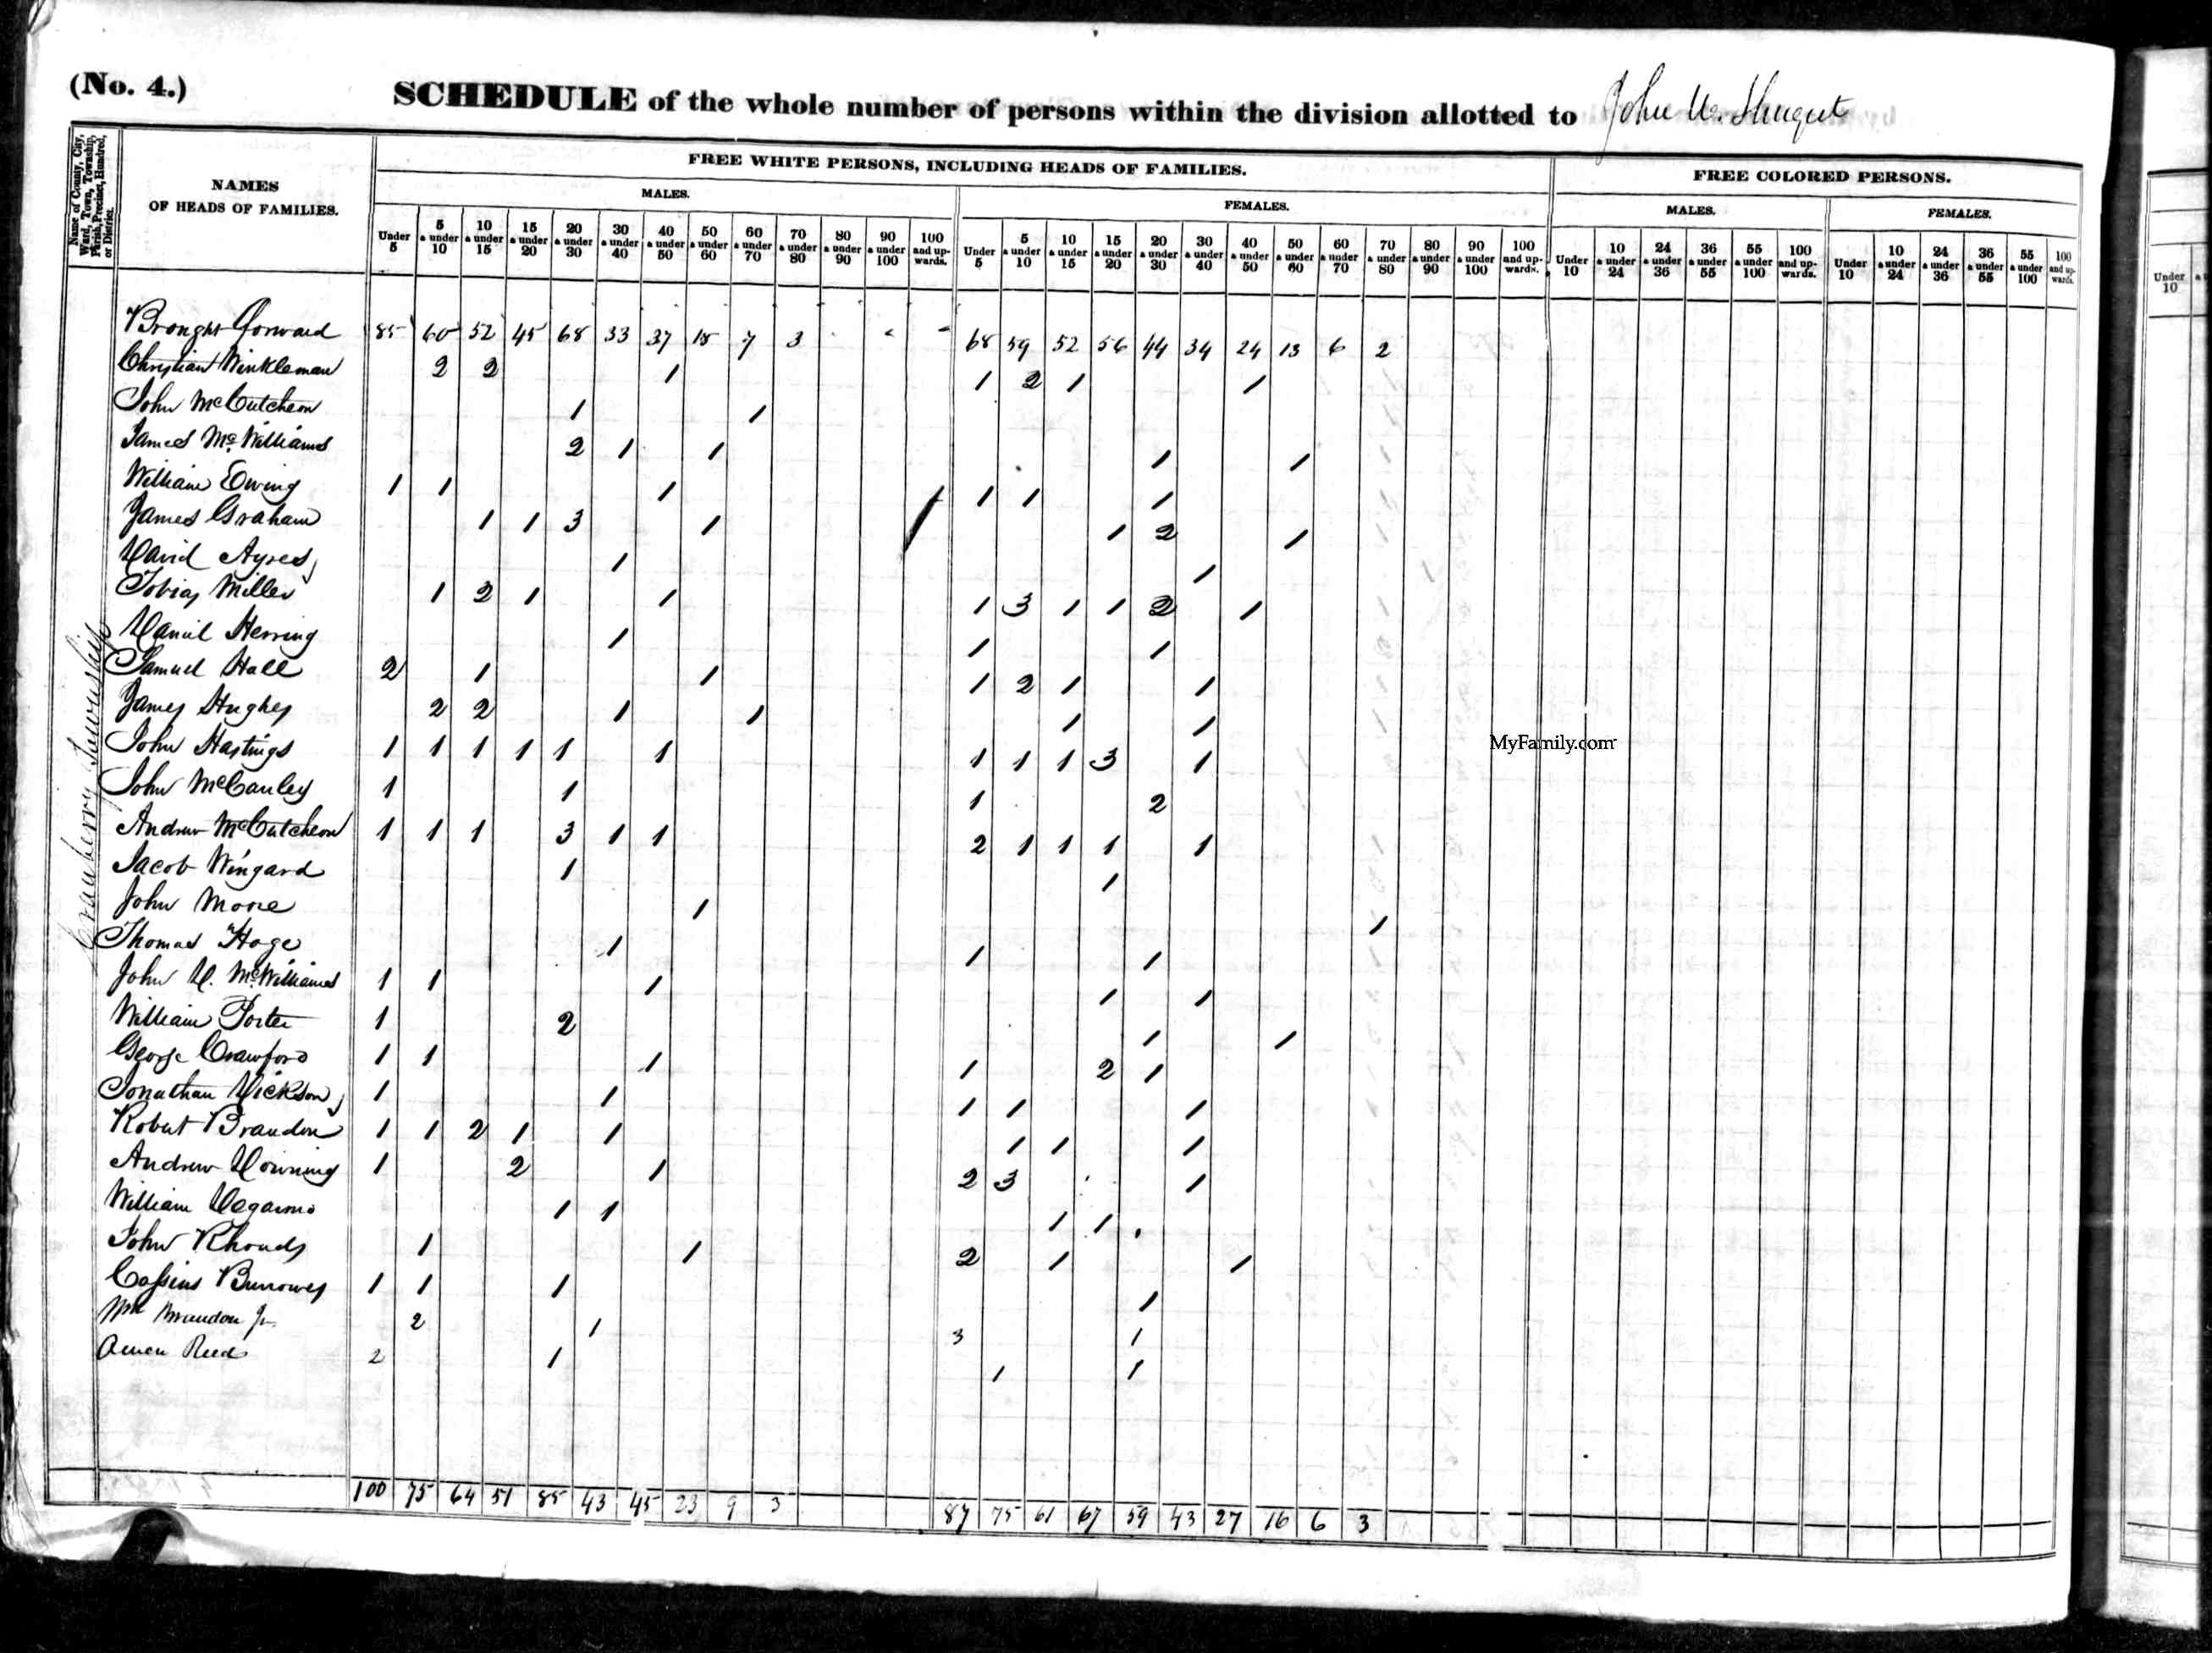 (No. 4.)
SCHEDULE of the whole number of persons within the division allotted to John
Name of County, City, Ward, Town, Township, Parish, Precinct, Hundred, or District.
NAMES OF HEADS OF FAMILIES.
FREE WHITE PERSONS, INCLUDING HEADS OF FAMILIES.
FREE COLORED PERSONS.
MALES. FEMALES. MALES. FEMALES.
Under 5 5 & under 10 10 & under 15 15 & under 20 20 & under 30 30 & under 40 40 & under 50 50 & under 60 60 & under 70 70 & under 80 80 & under 90 90 & under 100 100 and up-wards. Under 5 5 & under 10 10 & under 15 15 & under 20 20 & under 30 30 & under 40 40 & under 50 50 & under 60 60 & under 70 70 & under 80 80 & under 90 90 & under 100 100 and up-wards. Under 10 10 & under 24 24 & under 36 36 & under 55 55 & under 100 100 and up-wards. Under 10 10 & under 24 24 & under 36 36 & under 55 55 & under 100 100 and up-wards.
Under 10
Cranberry Township
Brought forward 85 60 52 45 68 33 37 18 7 3 68 59 52 56 44 34 24 13 6 2
Christian Winkleman 2 2 1 1 2 1 1
John McCutcheon 1 1
James McWilliams 2 1 1 1 1
William Ewing 1 1 1 1 1 1
James Graham 1 1 3 1 1 2 1
David Ayres 1 1
Tobias Miller 1 2 1 1 1 3 1 1 2 1
Daniel Herring 1 1 1
Samuel Hall 2 1 1 1 2 1 1
James Hughes 2 2 1 1 1 1
John Hastings 1 1 1 1 1 1 1 1 1 3 1
John McCauley 1 1 1 2
Andrew McCutcheon 1 1 1 3 1 1 2 1 1 1 1
Jacob Wingard 1 1
John Moore 1 1
Thomas Hoge 1 1 1
John D. McWilliams 1 1 1 1 1
William Porter 1 2 1 1
George Crawford 1 1 1 1 2 1
Jonathan Dickson 1 1 1 1 1
Robert Brandon 1 1 2 1 1 1 1 1
Andrew Downing 1 2 1 2 3 1
William 1 1 1 1
John Rhoads 1 1 2 1 1
Cassius Burrowes 1 1 1 1
Wm Brandon Jr 2 1 3 1
Reed 2 1 1 1
100 75 64 51 85 43 45 23 9 3 87 75 61 67 59 43 27 16 6 3
MyFamily.com